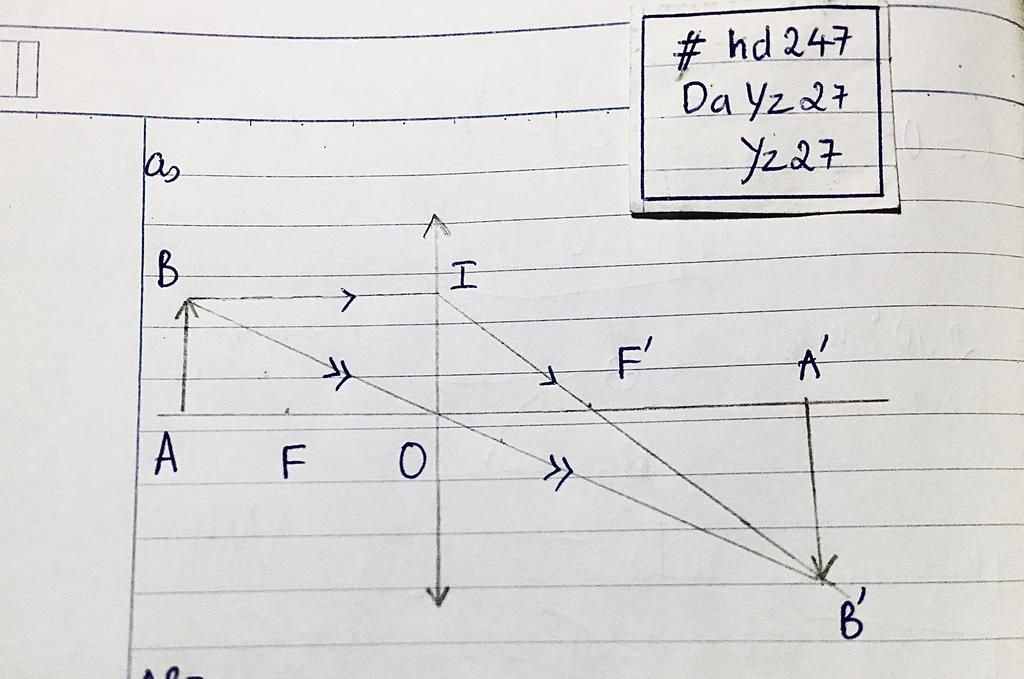 # hd 247
Da Yz 27
Yz 27
a,
B
I
F'
A'
A
F
O
B'